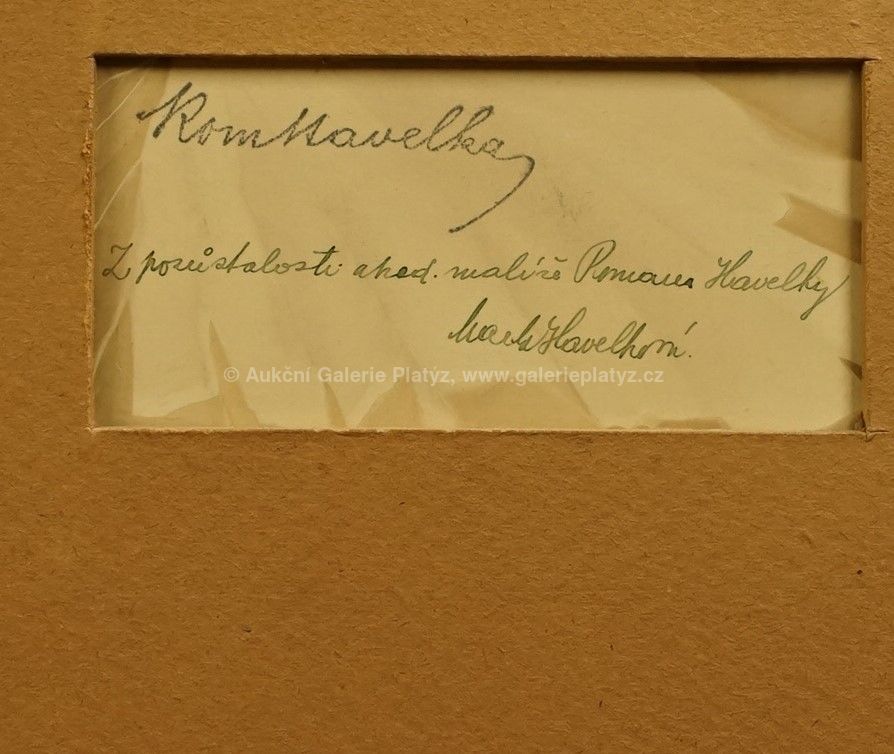 Rom Havelka
Z pozůstalosti akad. malíře Romana Havelky
Havelková.
© Aukční Galerie Platýz, www.galerieplatyz.cz